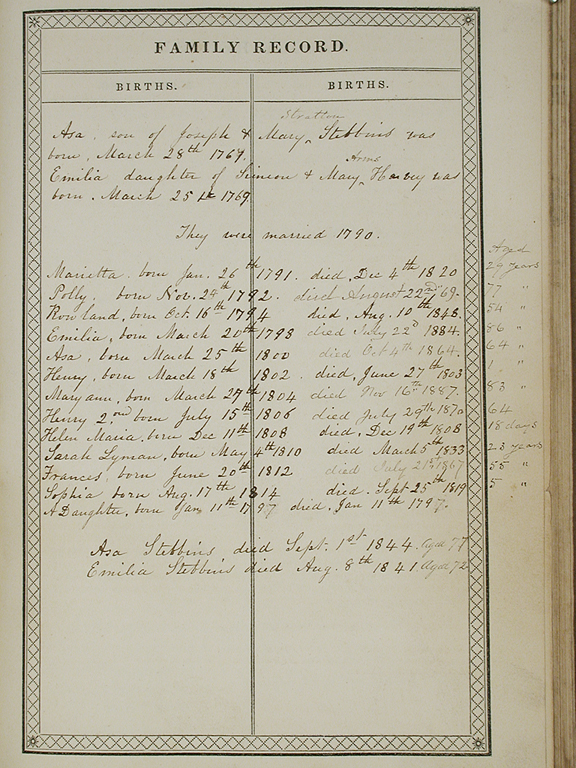 FAMILY RECORD.
BIRTHS. BIRTHS.
Stratton
Asa, son of Joseph & Mary ‸ Stebbins was
born, March 28th 1767.
Arms
Emilia daughter of Simeon & Mary ‸ Harvey was
born. March 25th 1769
They were married 1790.
Aged
Marietta. born Jan. 26th 1791. died, Dec 4th 1820 29 years
Polly. born Nov. 24th 1792. died August 22nd 69. 77 "
Rowland, born Oct. 16th 1794 died, Aug. 10th 1848. 54 "
Emilia, born March 20th 1798 died July 22d 1884. 86 "
Asa, born March 25th 1800 died Oct 4th 1864. 64 "
Henry, born March 18th 1802. died, June 27th 1803 1 "
Maryann, born March 27th 1804 died Nov 16th 1887. 83 "
Henry 2nd born July 15th 1806 died July 29th 1870 64
Helen Maria, born Dec 11th 1808 died, Dec 19th 1808 18 days
Sarah Lyman, born May 4th 1810 died March 5th 1833 23 years
Frances, born June 20th 1812 died July 21st 1867 55 "
Sophia born Aug. 17th 1814 died. Sept 25th 1819 5 "
A Daughter, born Jan 11th 1797 died. Jan 11th 1797.
Asa Stebbins died Sept. 1st 1844. Aged 77
Emilia Stebbins died Aug. 8th 1841 Aged 72